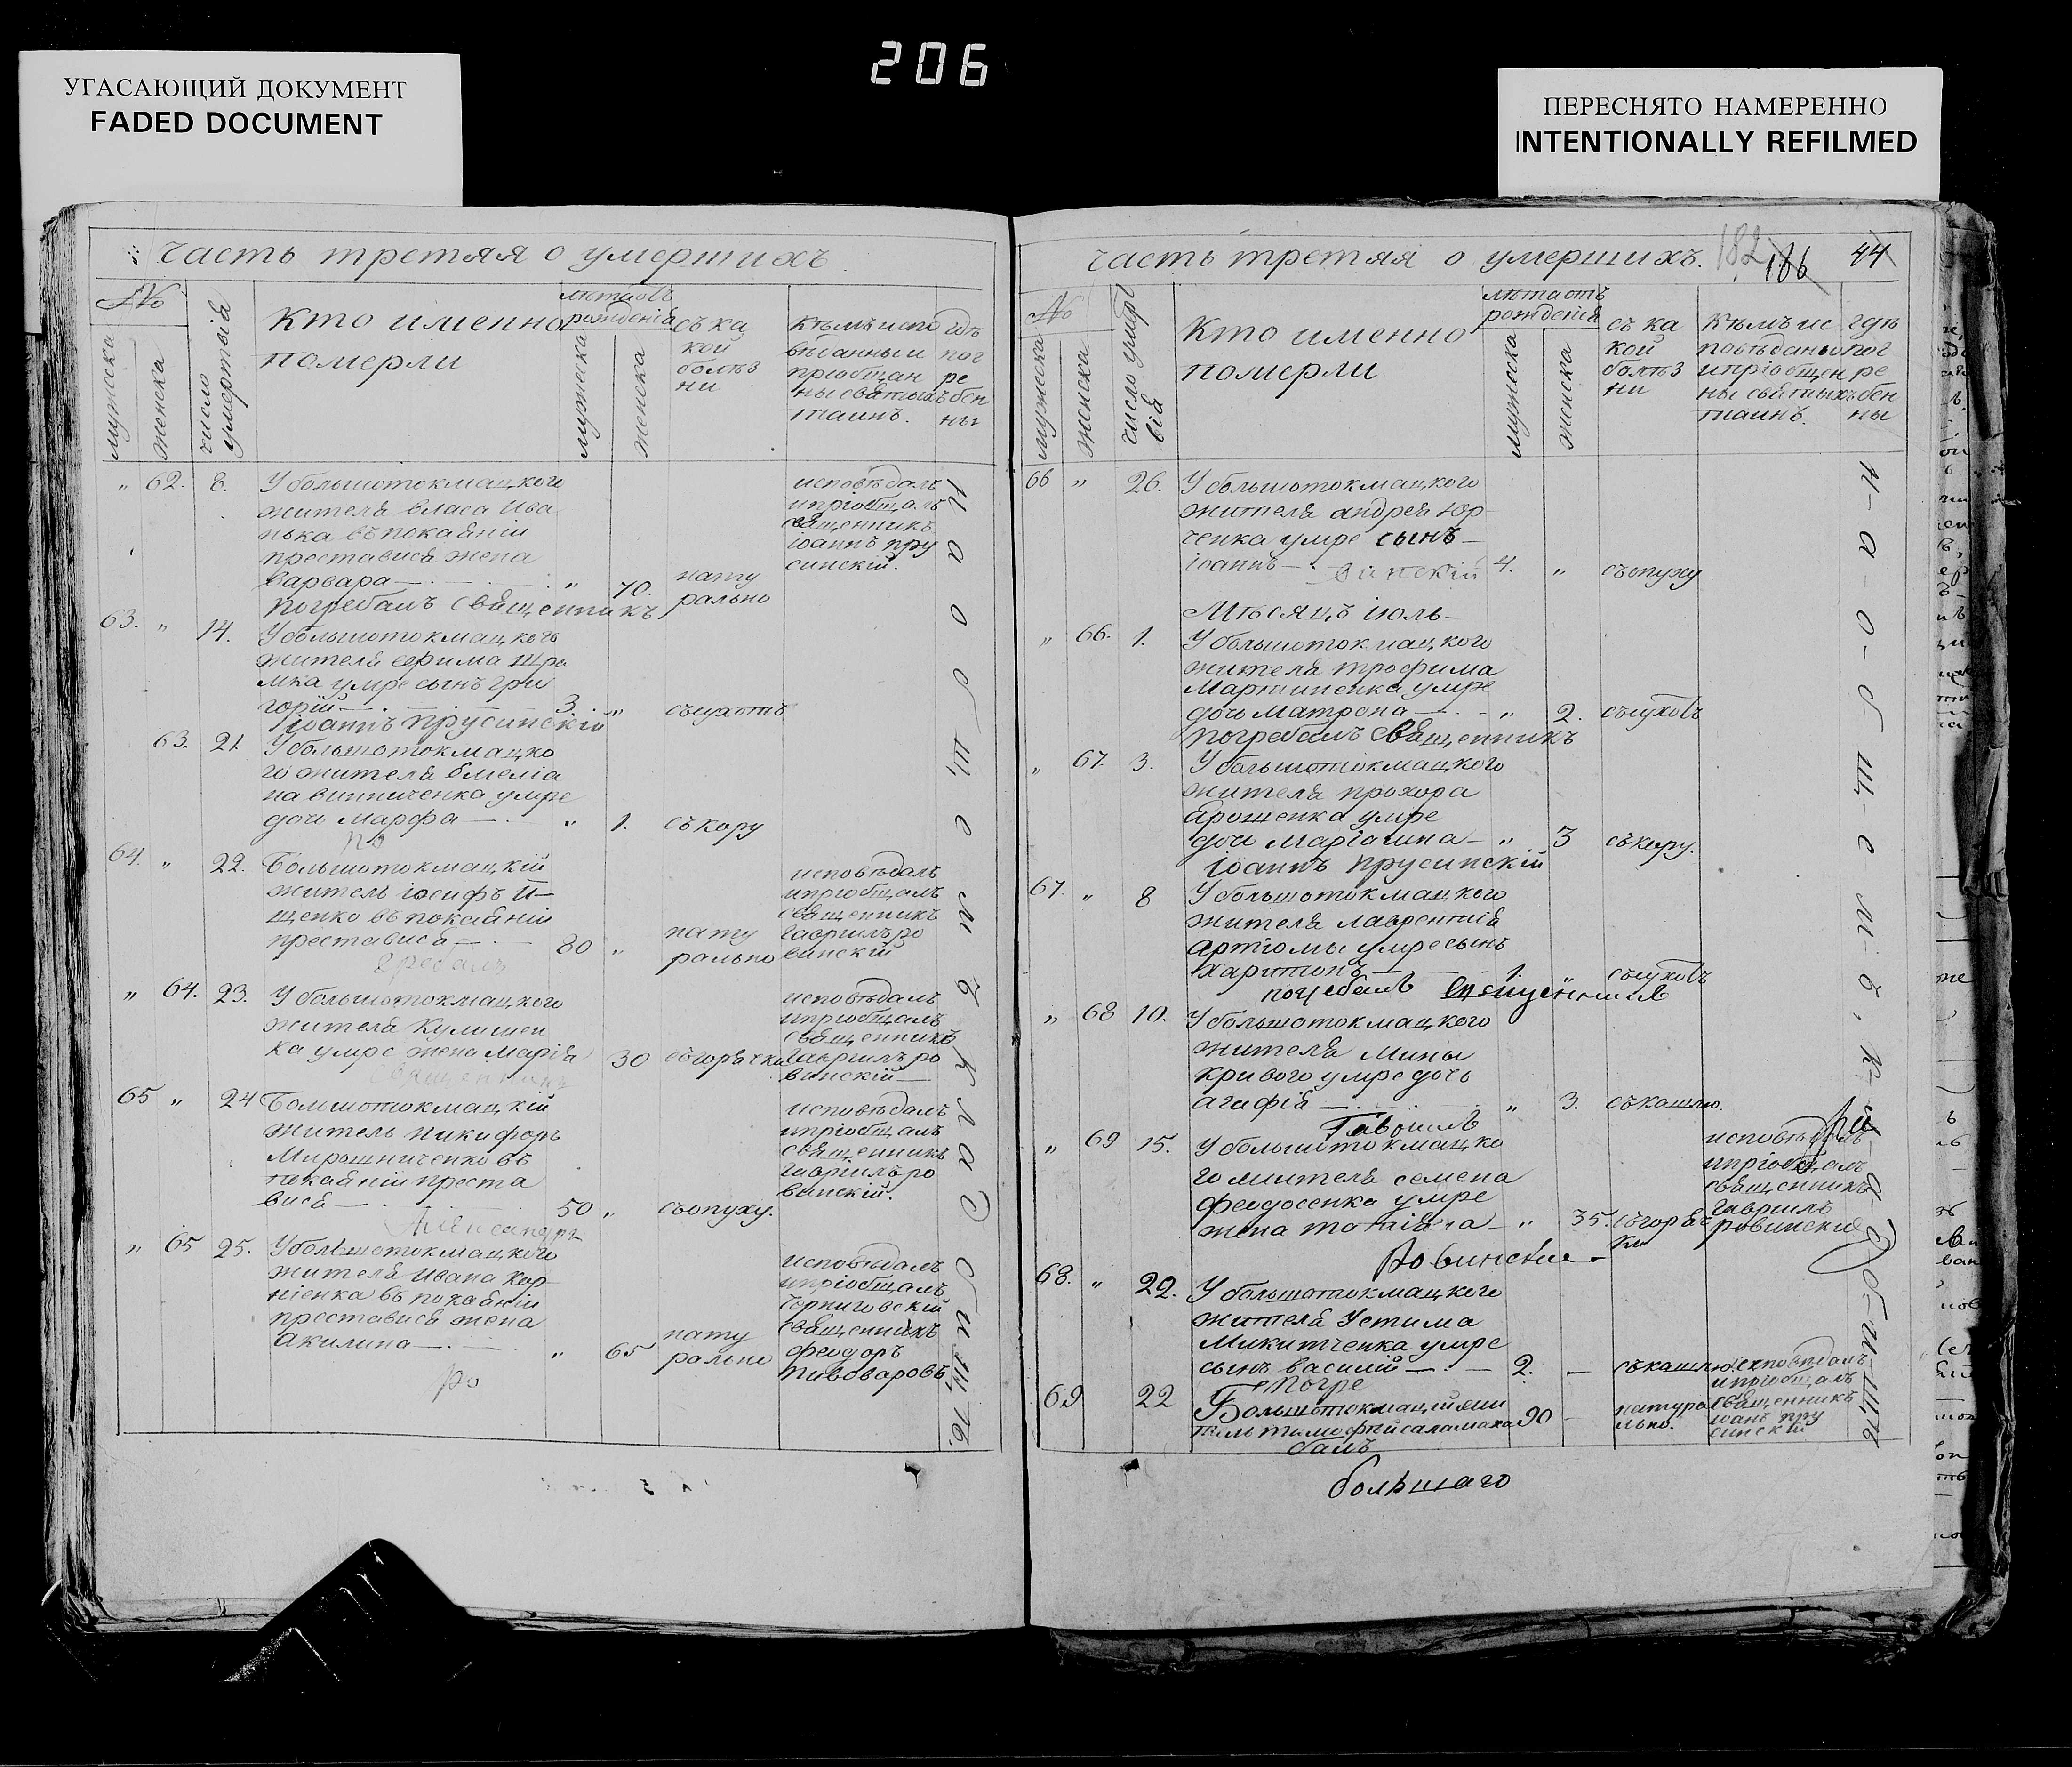 206
УГАСАЮЩИЙ ДОКУМЕНТ
FADED DOCUMENT
ПЕРЕСНЯТО НАМЕРЕННО
INTENTIONALLY REFILMED
часть третяя о умершихъ
№
мужеска
женска
число умертвія
кто именно
померли
лѣта отъ
рожденія
мужеска
женска
съ ка
кой
болѣз
ни
кѣмъ испо
вѣданы и
пріобщан
ны святыхъ
таинъ.
гдѣ
пог
ре
бен
ны
„ 62. 8. У большотокмацкого
жителя власа Ива
нька въ покаяніи
преставися жена
варвара — „ 70. нату
рально
исповѣдалъ
и пріобщалъ
священникъ
іоаннъ пру
синскій.
погребалъ священникъ
63. „ 14. У большотокмацкого
жителя ефима Шра
мка умре сынъ гри
горій — 3. „ съсухотъ
іоаннъ прусинскій
63. 21. У большотокмацко
го жителя Емеліа
на винниченка умре
дочь Марфа — „ 1. съкору
по
64. „ 22. Большотокмацкій
житель іосифъ И—
щенко въ покаяніи
преставися — 80 „ нату
рально
исповѣдалъ
и пріобщалъ
священникъ
гавріилъ ро
винскій
гребалъ
„ 64. 23. У большотокмацкого
жителя Кулишен
ка умре жена Марія 30 съгорячки
исповѣдалъ
и пріобщалъ
священникъ
гавріилъ ро
винскій —
священникъ
65 „ 24 Большотокмацкій
житель никифоръ
Мирошниченко въ
покаяніи преста
вися — 50 „ съопуху.
исповѣдалъ
и пріобщалъ
священникъ
гавріилъ ро
винскій.
„ 65 25. У большотокмацкого
жителя Ивана Кор
ніенка въ покаяніи
преставися жена
Акилина — „ 65 нату
рально
исповѣдалъ
и пріобщалъ
Черниговскій
священникъ
феодоръ
Пивоваровъ
ро
на общемъ кладбищѣ.
часть третяя о умершихъ.
182 186 44
№
мужеска
женска
число умерт
вія
кто именно
померли
лѣта отъ
рожденія
мужеска
женска
съ ка
кой
болѣз
ни
кѣмъ ис
повѣданы
и пріобщен
ны святыхъ
таинъ.
гдѣ
пог
ре
бен
ны
66 „ 26. У большотокмацкого
жителя андрея Юр
ченка умре сынъ —
іоаннъ — 4. „ съопуху
винскій
Мѣсяцъ іюль
„ 66. 1. У большотокмацкого
жителя трофима
Мартиненка умре
дочь Матрона — „ 2. съсухотъ
погребалъ священникъ
„ 67. 3. У большотокмацкого
жителя прохора
Ярошенка умре
дочь Маріамна — „ 3 съкору.
іоаннъ прусинскій
67. „ 8 У большотокмацкого
жителя лаврентія
артюмы умре сынъ
харитонъ — 1. „ съсухотъ
погребалъ
„ 68 10. У большотокмацкого
жителя Мины
кривого умре дочь
агафія — „ 3. съкашлю.
Гавриилъ
„ 69 15. У большотокмацко
го жителя семена
феодосенка умре
жена татіяна — „ 35. съгоряч
ки
исповѣдалъ
и пріобщалъ
священникъ
гавріилъ
ровинскій
Ровинскій —
68. „ 22. У большотокмацкого
жителя Устима
Микитченка умре
сынъ василій — 2. — съкашлю.
Погре
69 22 Большотокмацкій жи
тель тимофей саламаха 90 — натура
льно.
исповѣдалъ
и пріобщалъ
священникъ
іоанъ пру
синскій
балъ
на общемъ кладбищѣ
большаго